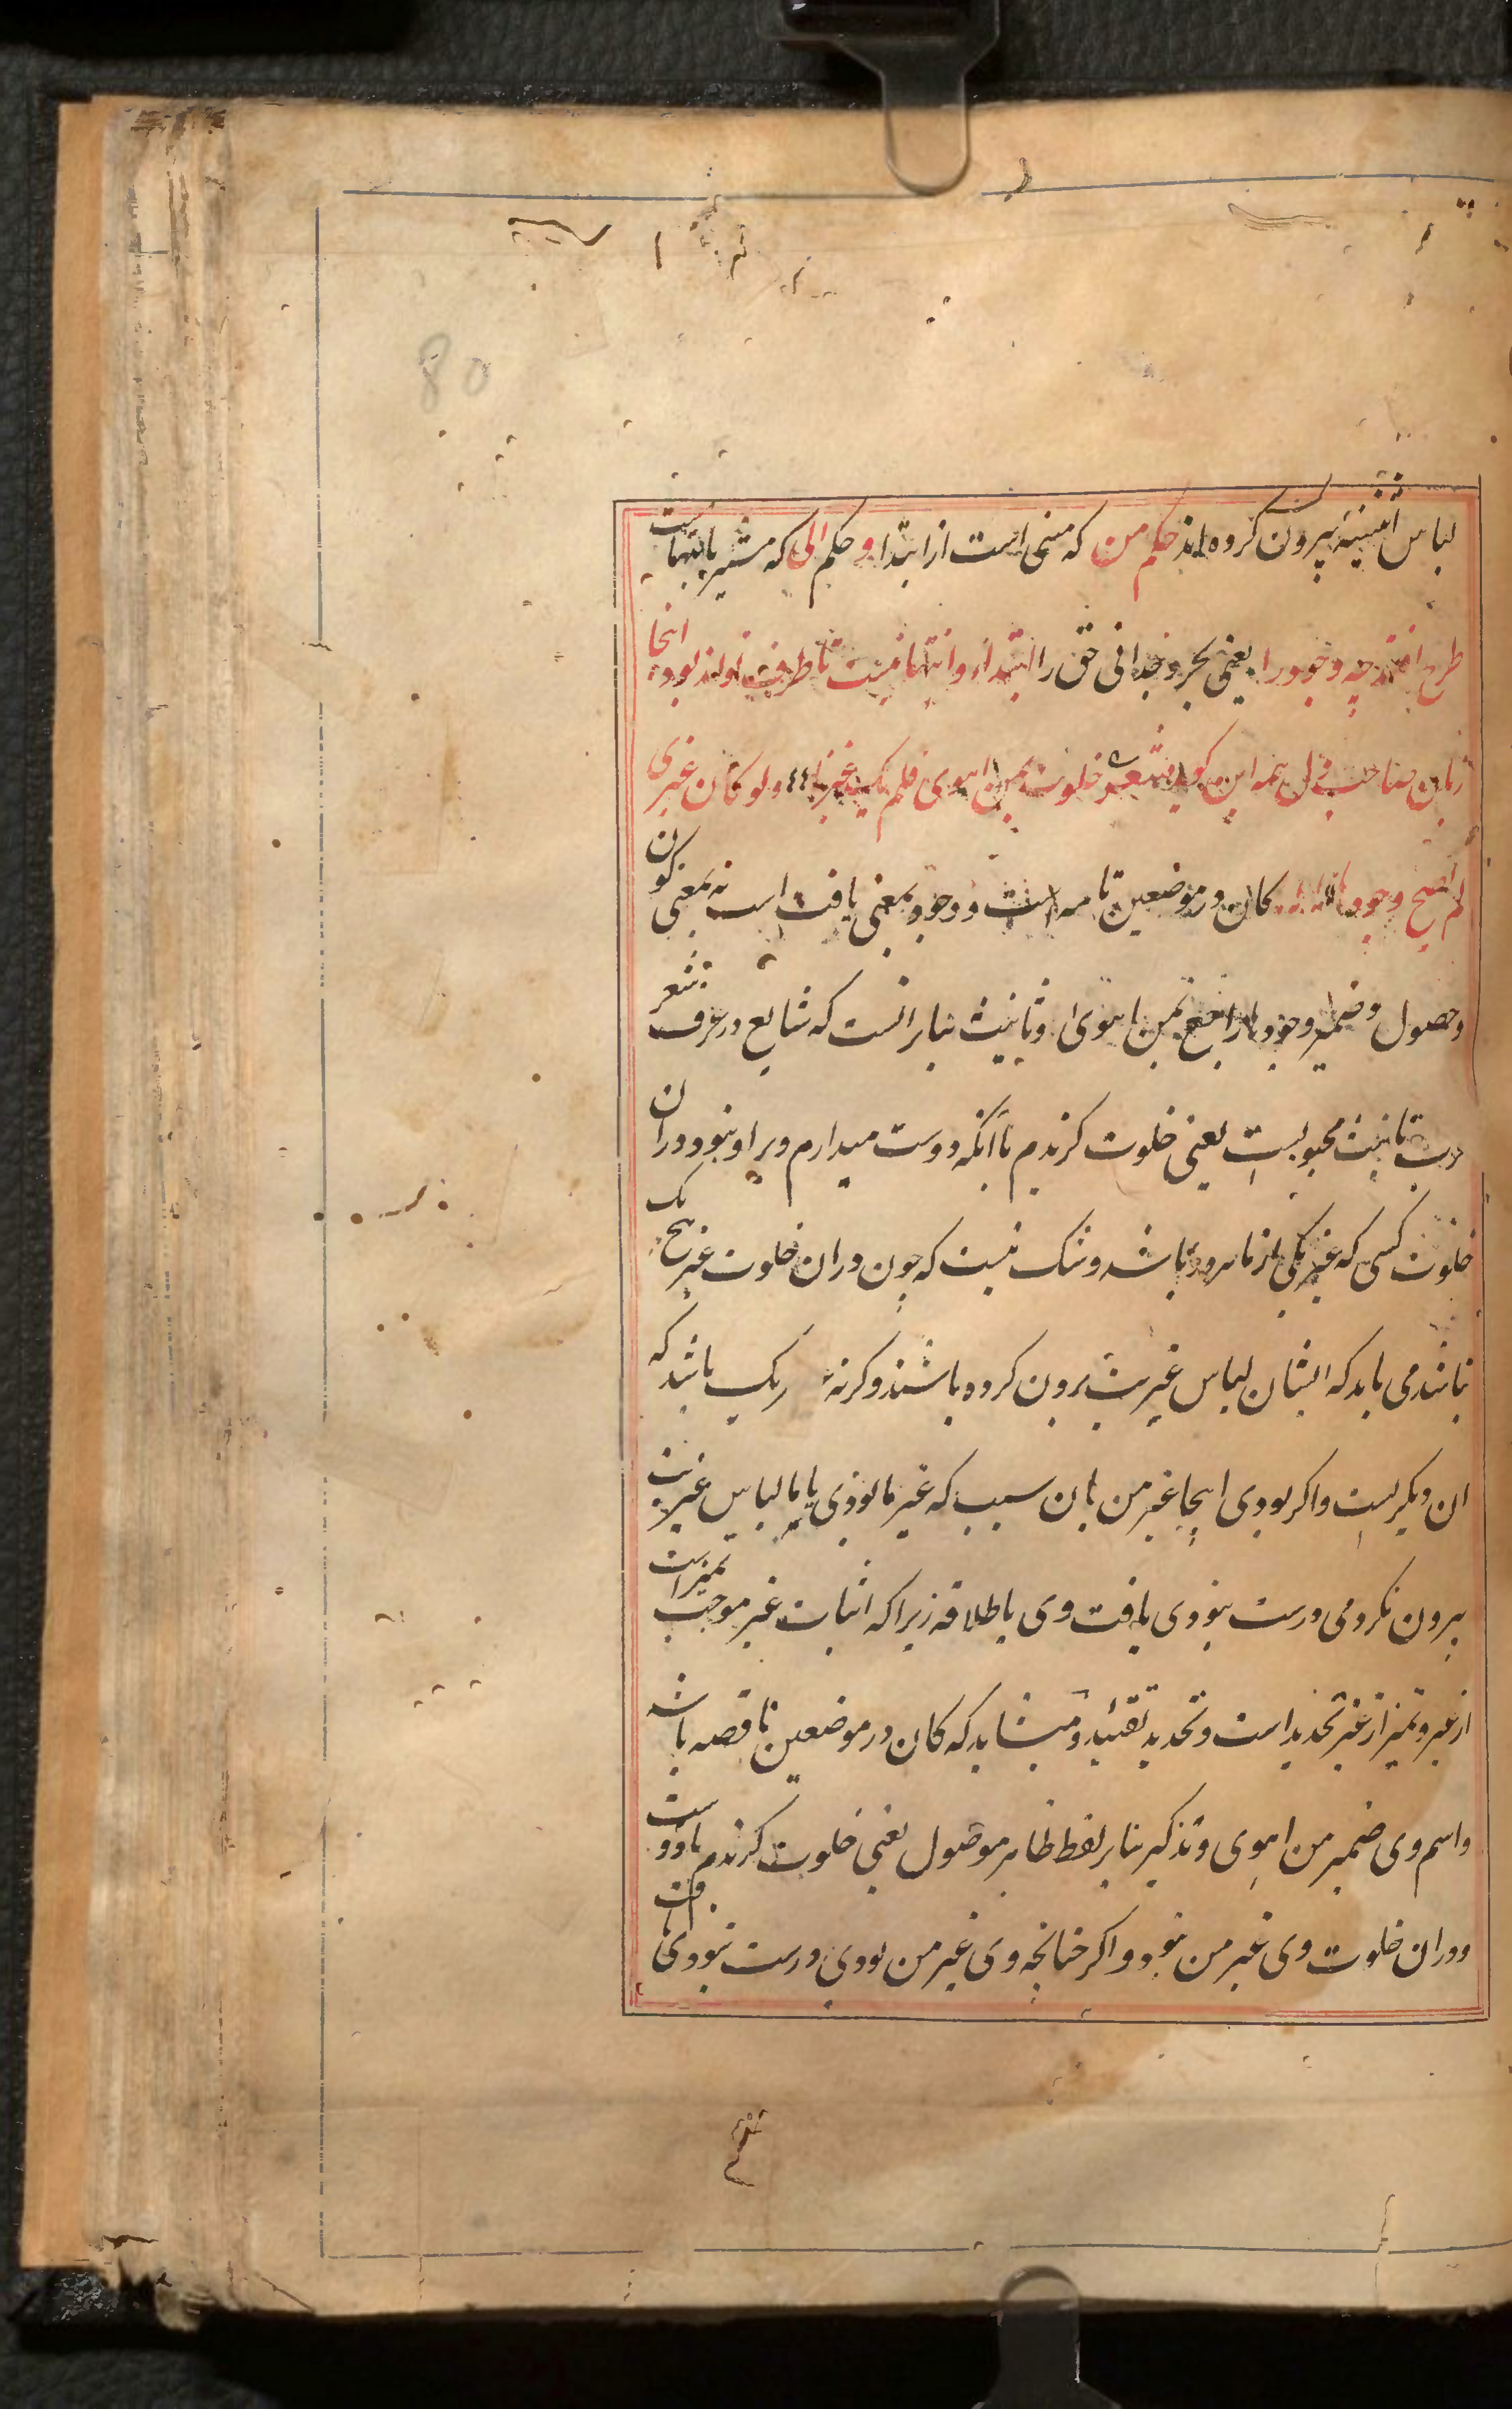 80
لباس اثنینیة بیرون کرده اند حکم من که منبی است از ابتدا و حکم الی که مشیر بانتهاست
طرح افتد چه وجود را یعنی بحر وجدانی حق را ابتداء و انتها نیست تا طرفیت تواند بود اینجا
زبان صاحب فی ل همه این گوید شعر خلوت بمن اهوی فلم یک غیرنا ولو کان غیری
لم اصح وجودها کان در موضعین تامه است و وجود بمعنی یافت است نه بمعنی کون
و حصول و ضمیر وجودها راجع بمن اهوی و تانیث بنابر انست که شایع در عرف شعر
عرب تانیث محبوبست یعنی خلوت کزیدم با آنکه دوست میدارم ویرا و نبود در ان
خلوت کسی که غیر یکی از ما هر دو باشد و شک نیست که چون در ان خلوت غیر هیچ یک
نباشد می باید که ایشان لباس غیریت برون کرده باشند و کرنه هر یک باشد که
ان دیکریست و اکر بودی اینجا غیر من بان سبب که غیر ما بودی یا ما لباس غیریت
بیرون نکردمی درست نبودی یافت وی باطلاقه زیرا که اثبات غیر موجب تمیزاست
از غیر و تمیز از غیر تحدید است و تحدید تقیید و میشاید که کان در موضعین ناقصه باشد
و اسم وی ضمیر من اهوی و تذکیر بنابر لفظ ظاهر موصول یعنی خلوت کزیدم با دوست
و در ان خلوت وی غیر من نبود و اکر چنانچه وی غیر من بودی درست نبودی یافت